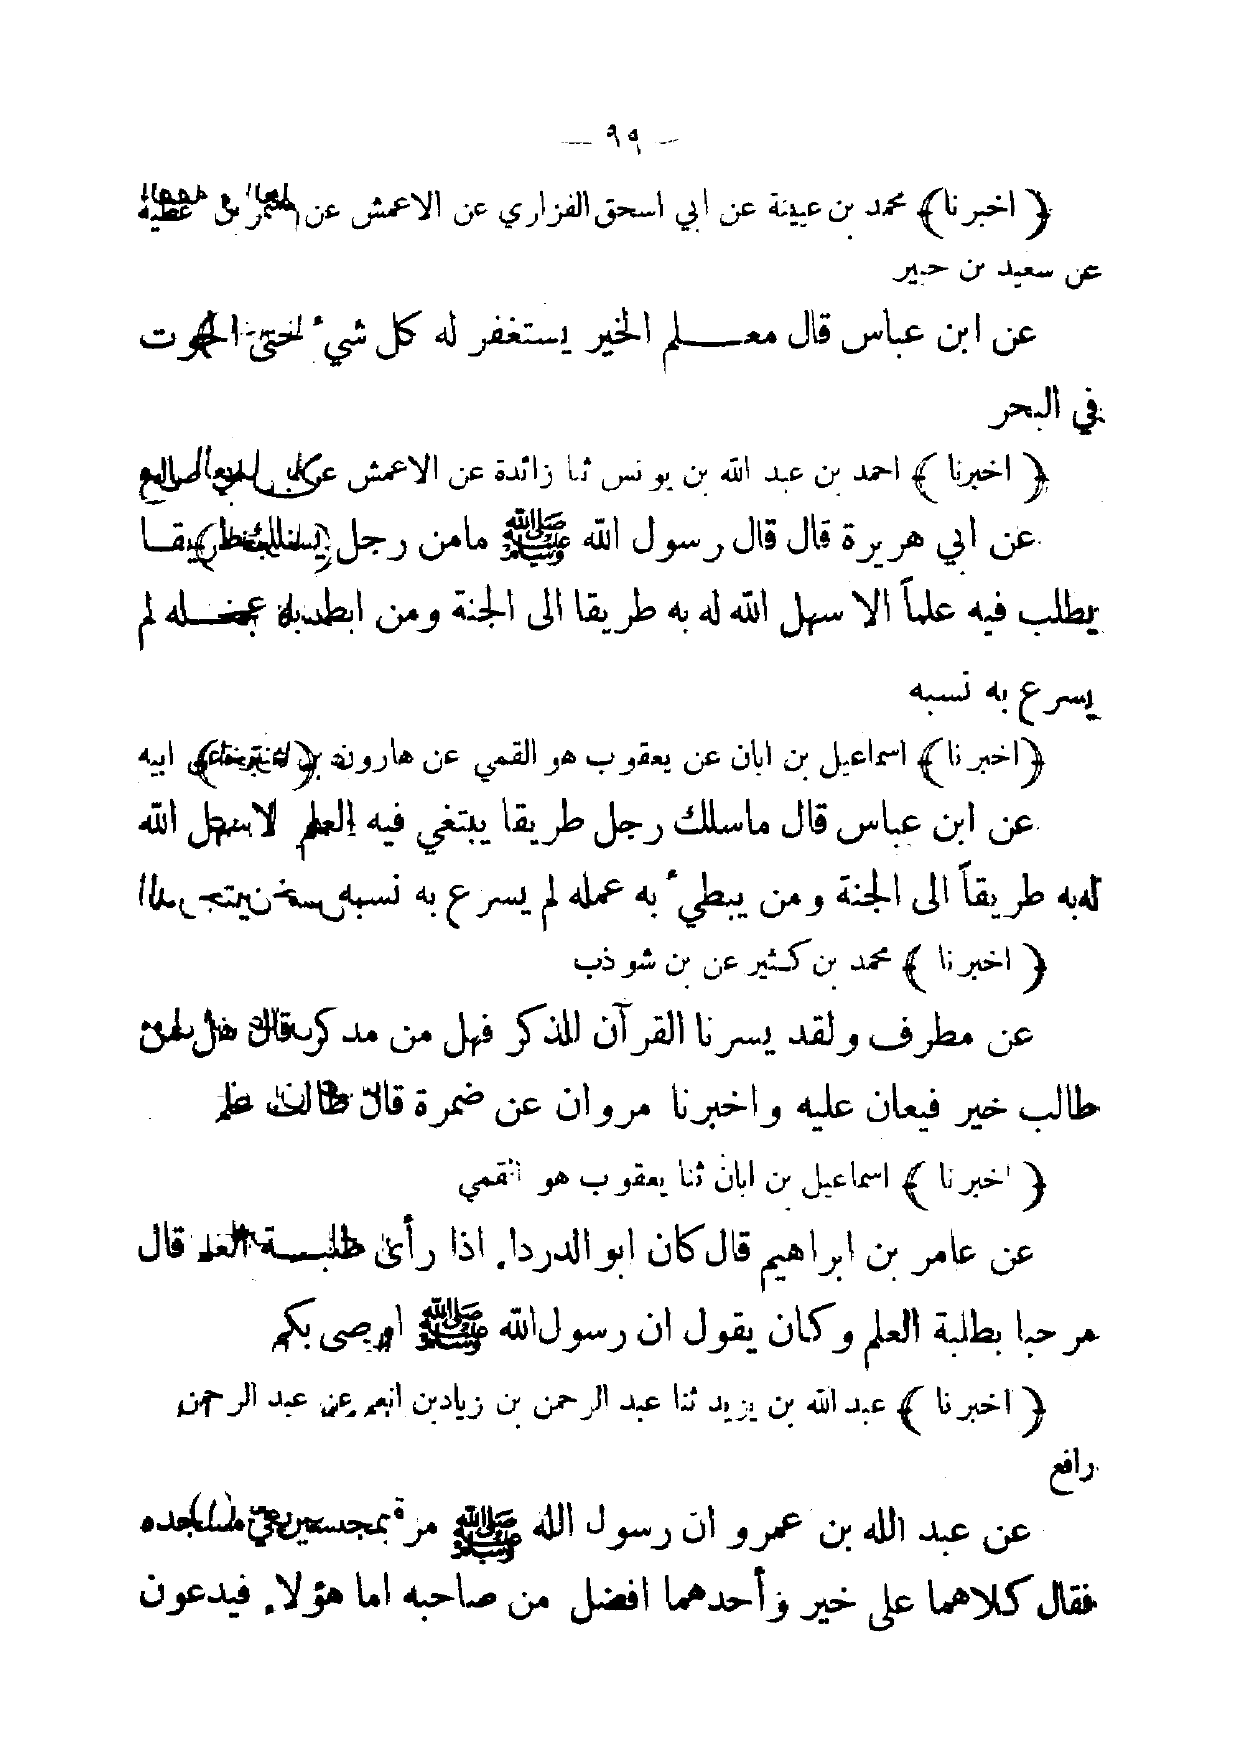 — ٩٩ —
﴿ اخبرنا ﴾ محمد بن عيينة عن ابي اسحق الفزاري عن الاعمش عن
عن سعيد بن جبير
عن ابن عباس قال معلم الخير يستغفر له كل شيء حتى الحوت
في البحر
﴿ اخبرنا ﴾ احمد بن عبد الله بن يونس ثنا زائدة عن الاعمش عن
عن ابي هريرة قال قال رسول الله ﷺ مامن رجل
يطلب فيه علماً الا سهل الله له به طريقا الى الجنة ومن ابطأ به عمله لم
يسرع به نسبه
﴿ اخبرنا ﴾ اسماعيل بن ابان عن يعقوب هو القمي عن هارون بن عنترة عن ابيه
عن ابن عباس قال ماسلك رجل طريقا يبتغي فيه العلم الا سهل الله
له به طريقاً الى الجنة ومن يبطيء به عمله لم يسرع به نسبه
﴿ اخبرنا ﴾ محمد بن كثير عن بن شوذب
عن مطرف ولقد يسرنا القرآن للذكر فهل من مدكر قال هل من
طالب خير فيعان عليه واخبرنا مروان عن ضمرة قال طالب علم
﴿ اخبرنا ﴾ اسماعيل بن ابان ثنا يعقوب هو القمي
عن عامر بن ابراهيم قال كان ابو الدرداء اذا رأى طلبة العلم قال
مرحبا بطلبة العلم وكان يقول ان رسول الله ﷺ اوصى بكم
﴿ اخبرنا ﴾ عبد الله بن يزيد ثنا عبد الرحمن بن زياد بن انعم عن عبد الرحمن
رافع
عن عبد الله بن عمرو ان رسول الله ﷺ مر بمجلسين في مسجده
فقال كلاهما على خير وأحدهما افضل من صاحبه اما هؤلاء فيدعون